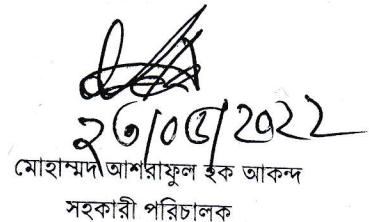 ২৩/০৫/২০২২
মোহাম্মদ আশরাফুল হক আকন্দ
সহকারী পরিচালক